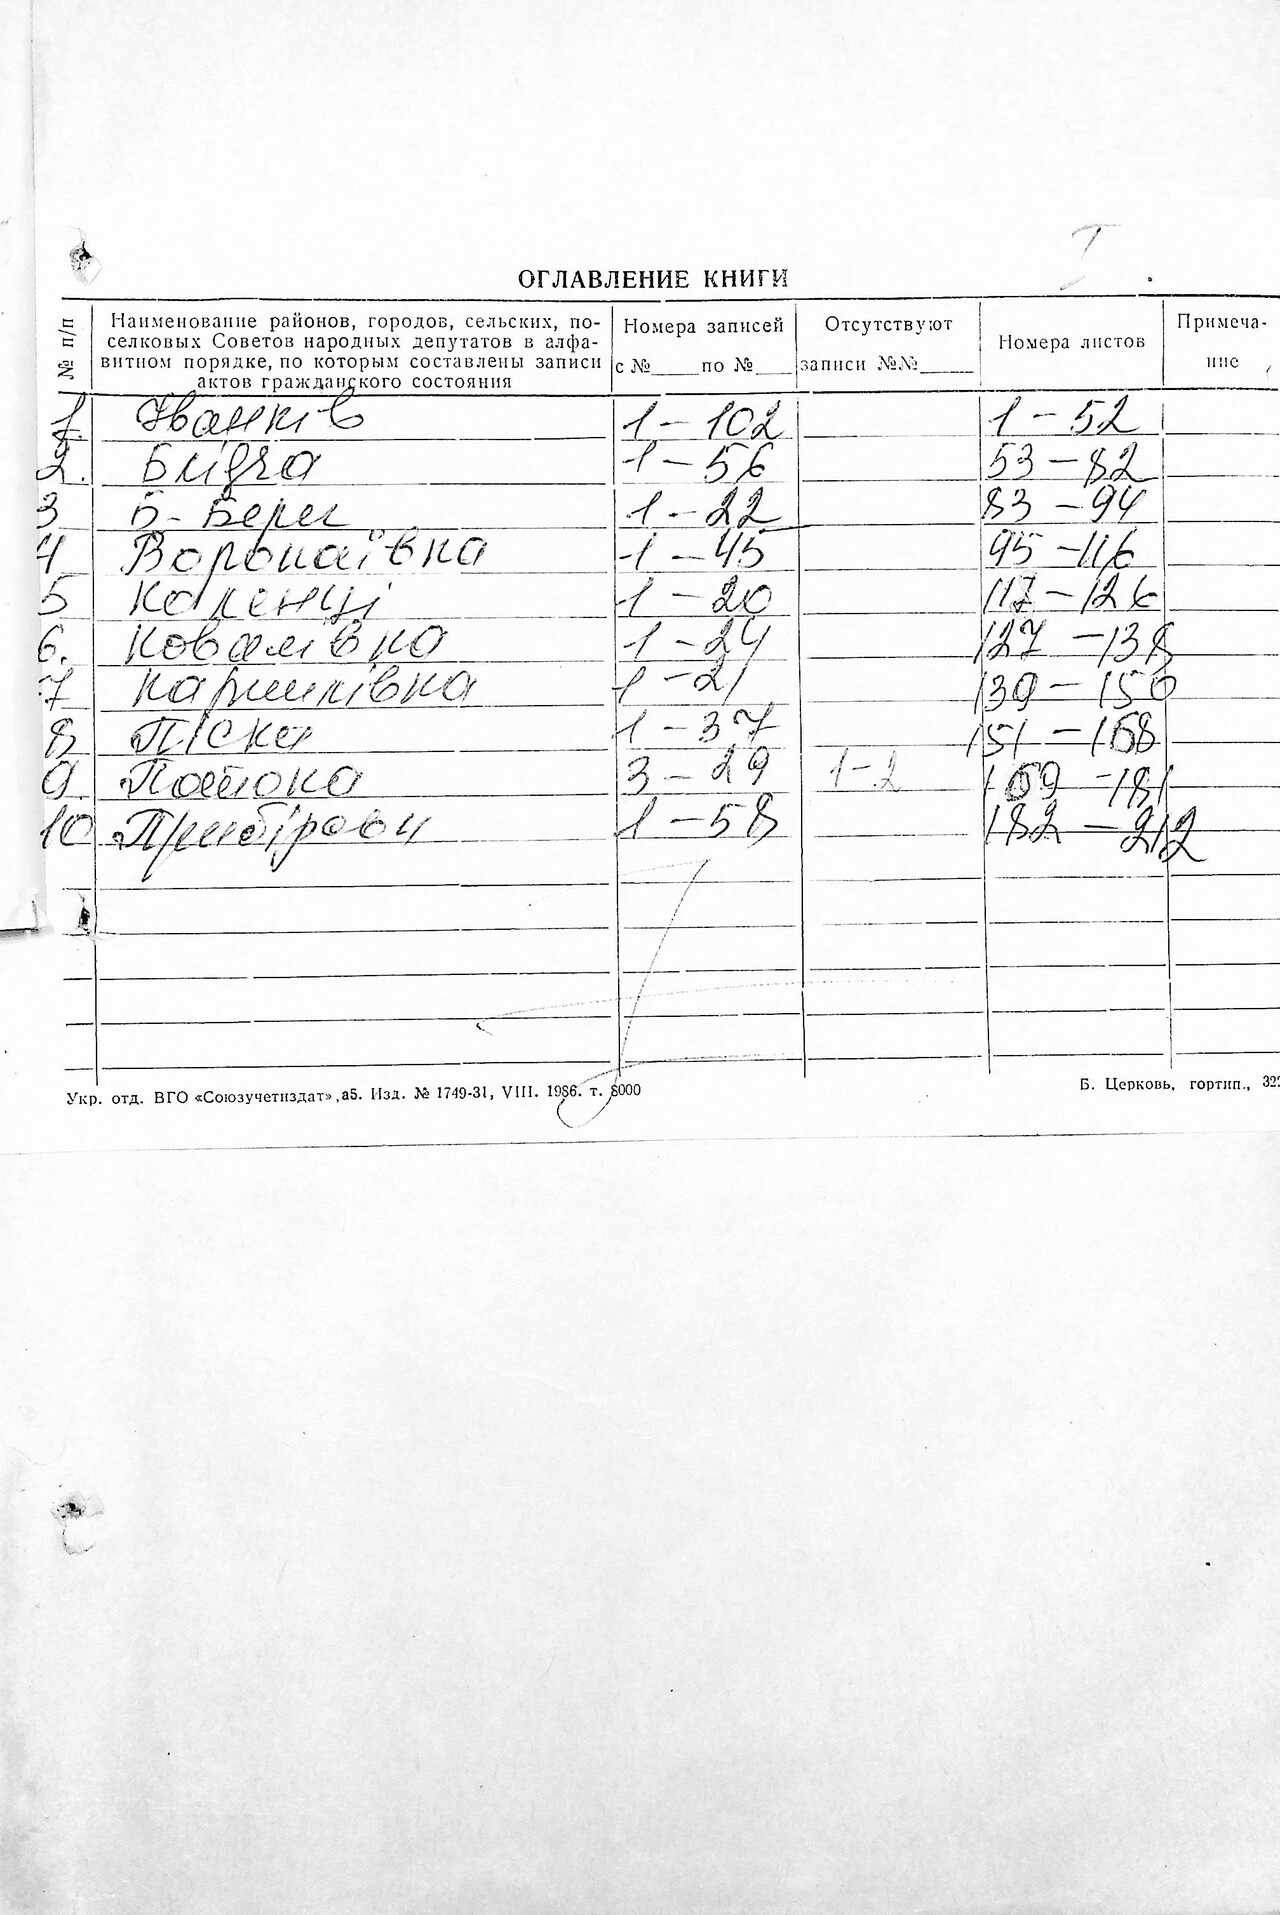 I
ОГЛАВЛЕНИЕ КНИГИ
№ п/п
Наименование районов, городов, сельских, по-
селковых Советов народных депутатов в алфа-
витном порядке, по которым составлены записи
актов гражданского состояния
Номера записей
с №____ по №____
Отсутствуют
записи №№____
Номера листов
Примеча-
ние
1. Іванків 1 – 102 1 – 52
2. Блідча 1 – 56 53 – 82
3 Б-Берег 1 – 22 83 – 94
4 Воропаївка 1 – 45 95 – 116
5 Коленці 1 – 20 117 – 126
6. Ковалівка 1 – 24 127 – 138
7 Кармилівка 1 – 21 139 – 150
8 Піски 1 – 37 151 – 168
9. Потоки 3 – 29 1-2 169 – 181
10 Прибірськ 1 – 58 182 – 212
Укр. отд. ВГО «Союзучетиздат», а5. Изд. № 1749-31, VIII. 1986. т. 8000
Б. Церковь, гортип., 322